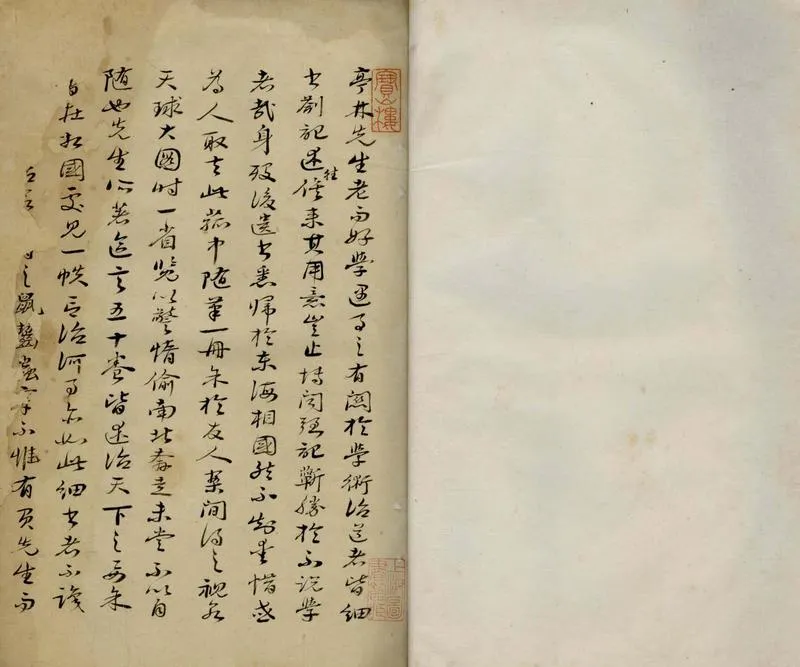 亭林先生老而好學遇事之有關於學術治道者皆細
書劄記述往俟來其用意豈止博聞強記蘄勝於不說學
者哉身歿後遺書悉歸於東海相國然不知愛惜或
為人取去此菰中隨筆一冊余於友人案間得之視如
天球大圖時一省覽以警惰偷南北奔走未嘗不以自
隨也先生所著言五十卷皆述治天下之要余
在相國處見一帙言治河事亦如此細書者不識
之鼠齧蟲穿不惟有負先生而
上海圖書館藏